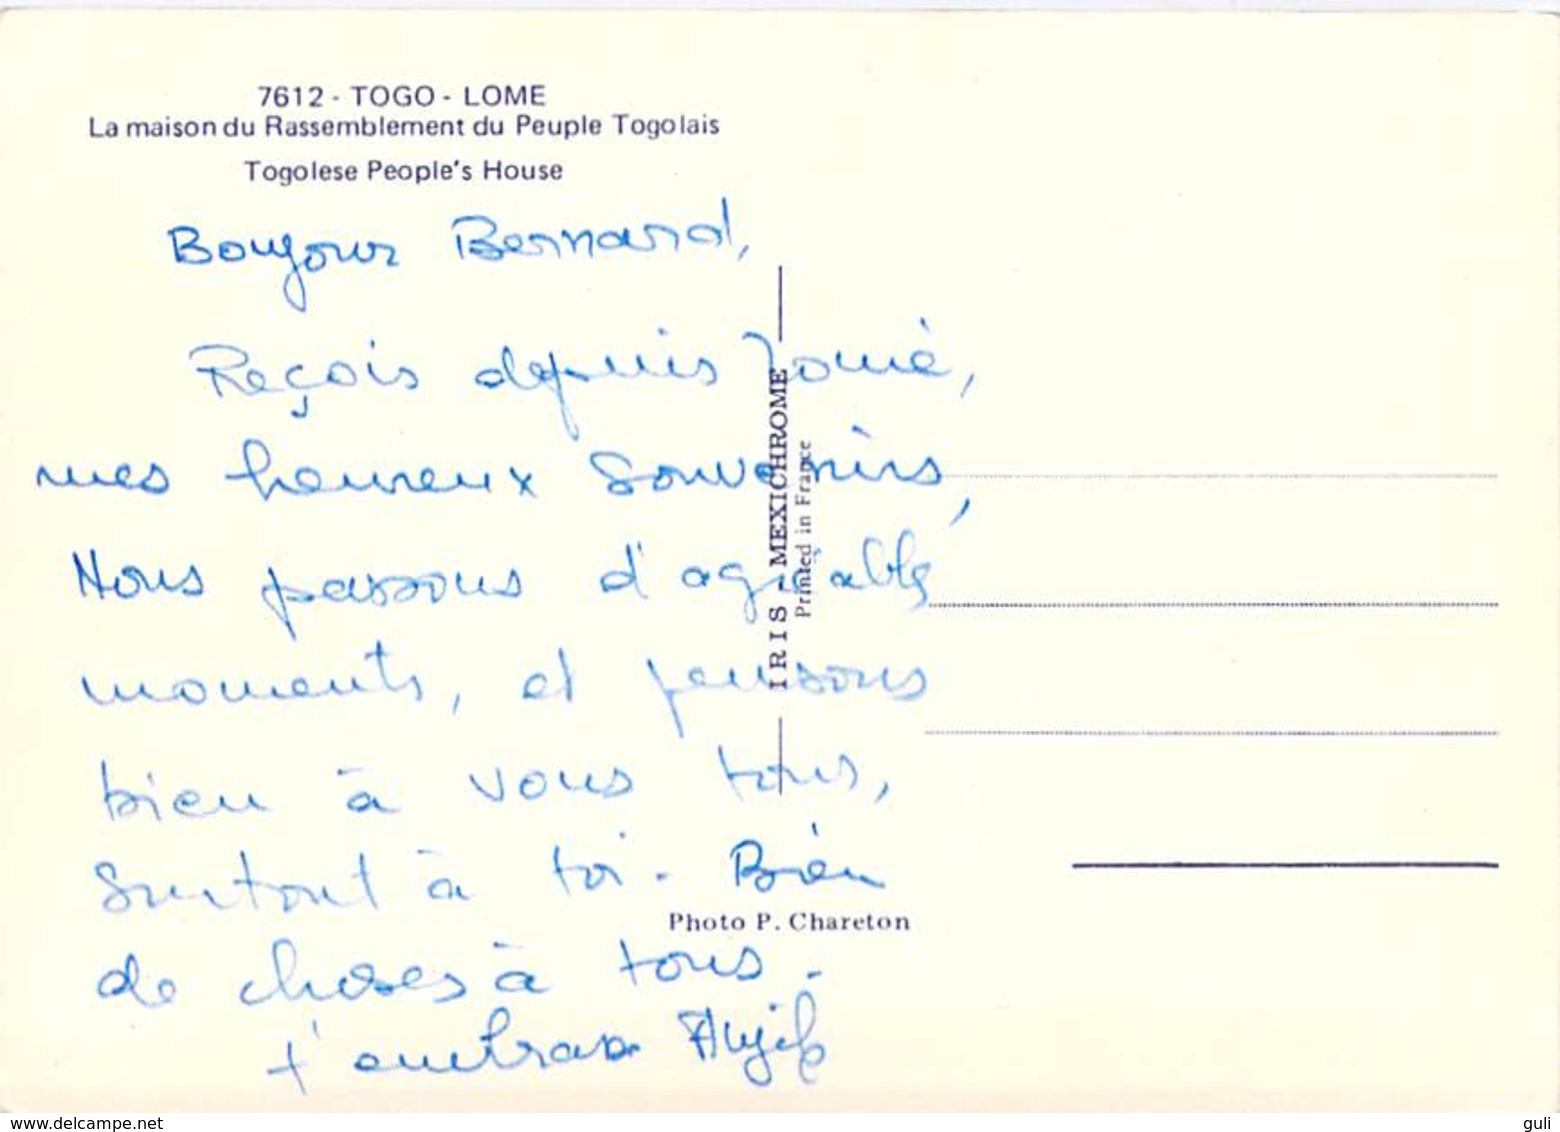 7612 - TOGO - LOME
La maison du Rassemblement du Peuple Togolais
Togolese People's House
Bonjour Bernard,
Reçois depuis Lomé,
mes heureux souvenirs,
Nous passons d'agréables
moments, et pensons
bien à vous tous,
surtout à toi. Bien
de choses à tous.
t'embrasse
IRIS - MEXICHROME
Printed in France
Photo P. Chareton
www.delcampe.net
guli